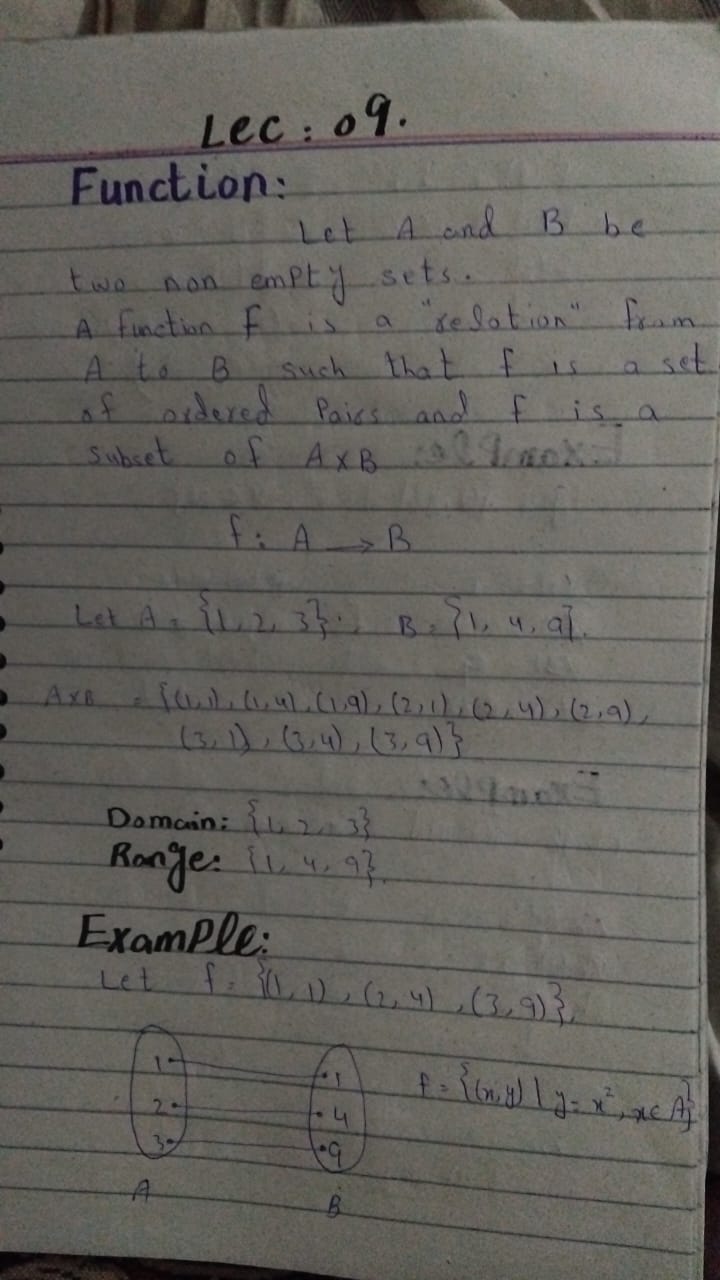 Lec : 09.
Function:
Let A and B be
two non empty sets.
A function F is a "relation" from
A to B such that f is a set
of ordered Pairs and f is a
subset of A×B
f: A → B
Let A = {1, 2, 3}. B = {1, 4, 9}.
A×B = {(1,1), (1,4), (1,9), (2,1), (2,4), (2,9),
(3,1), (3,4), (3,9)}
Domain: {1, 2, 3}
Range: {1, 4, 9}.
Example:
Let f = {(1,1), (2,4), (3,9)}.
1 1 f = {(x,y) | y = x², x∈A}
2 4
3 9
A B